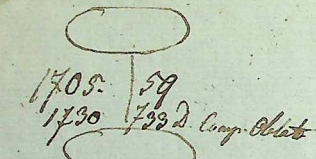 1705. 59
1730 733 D. Comp. Oblato